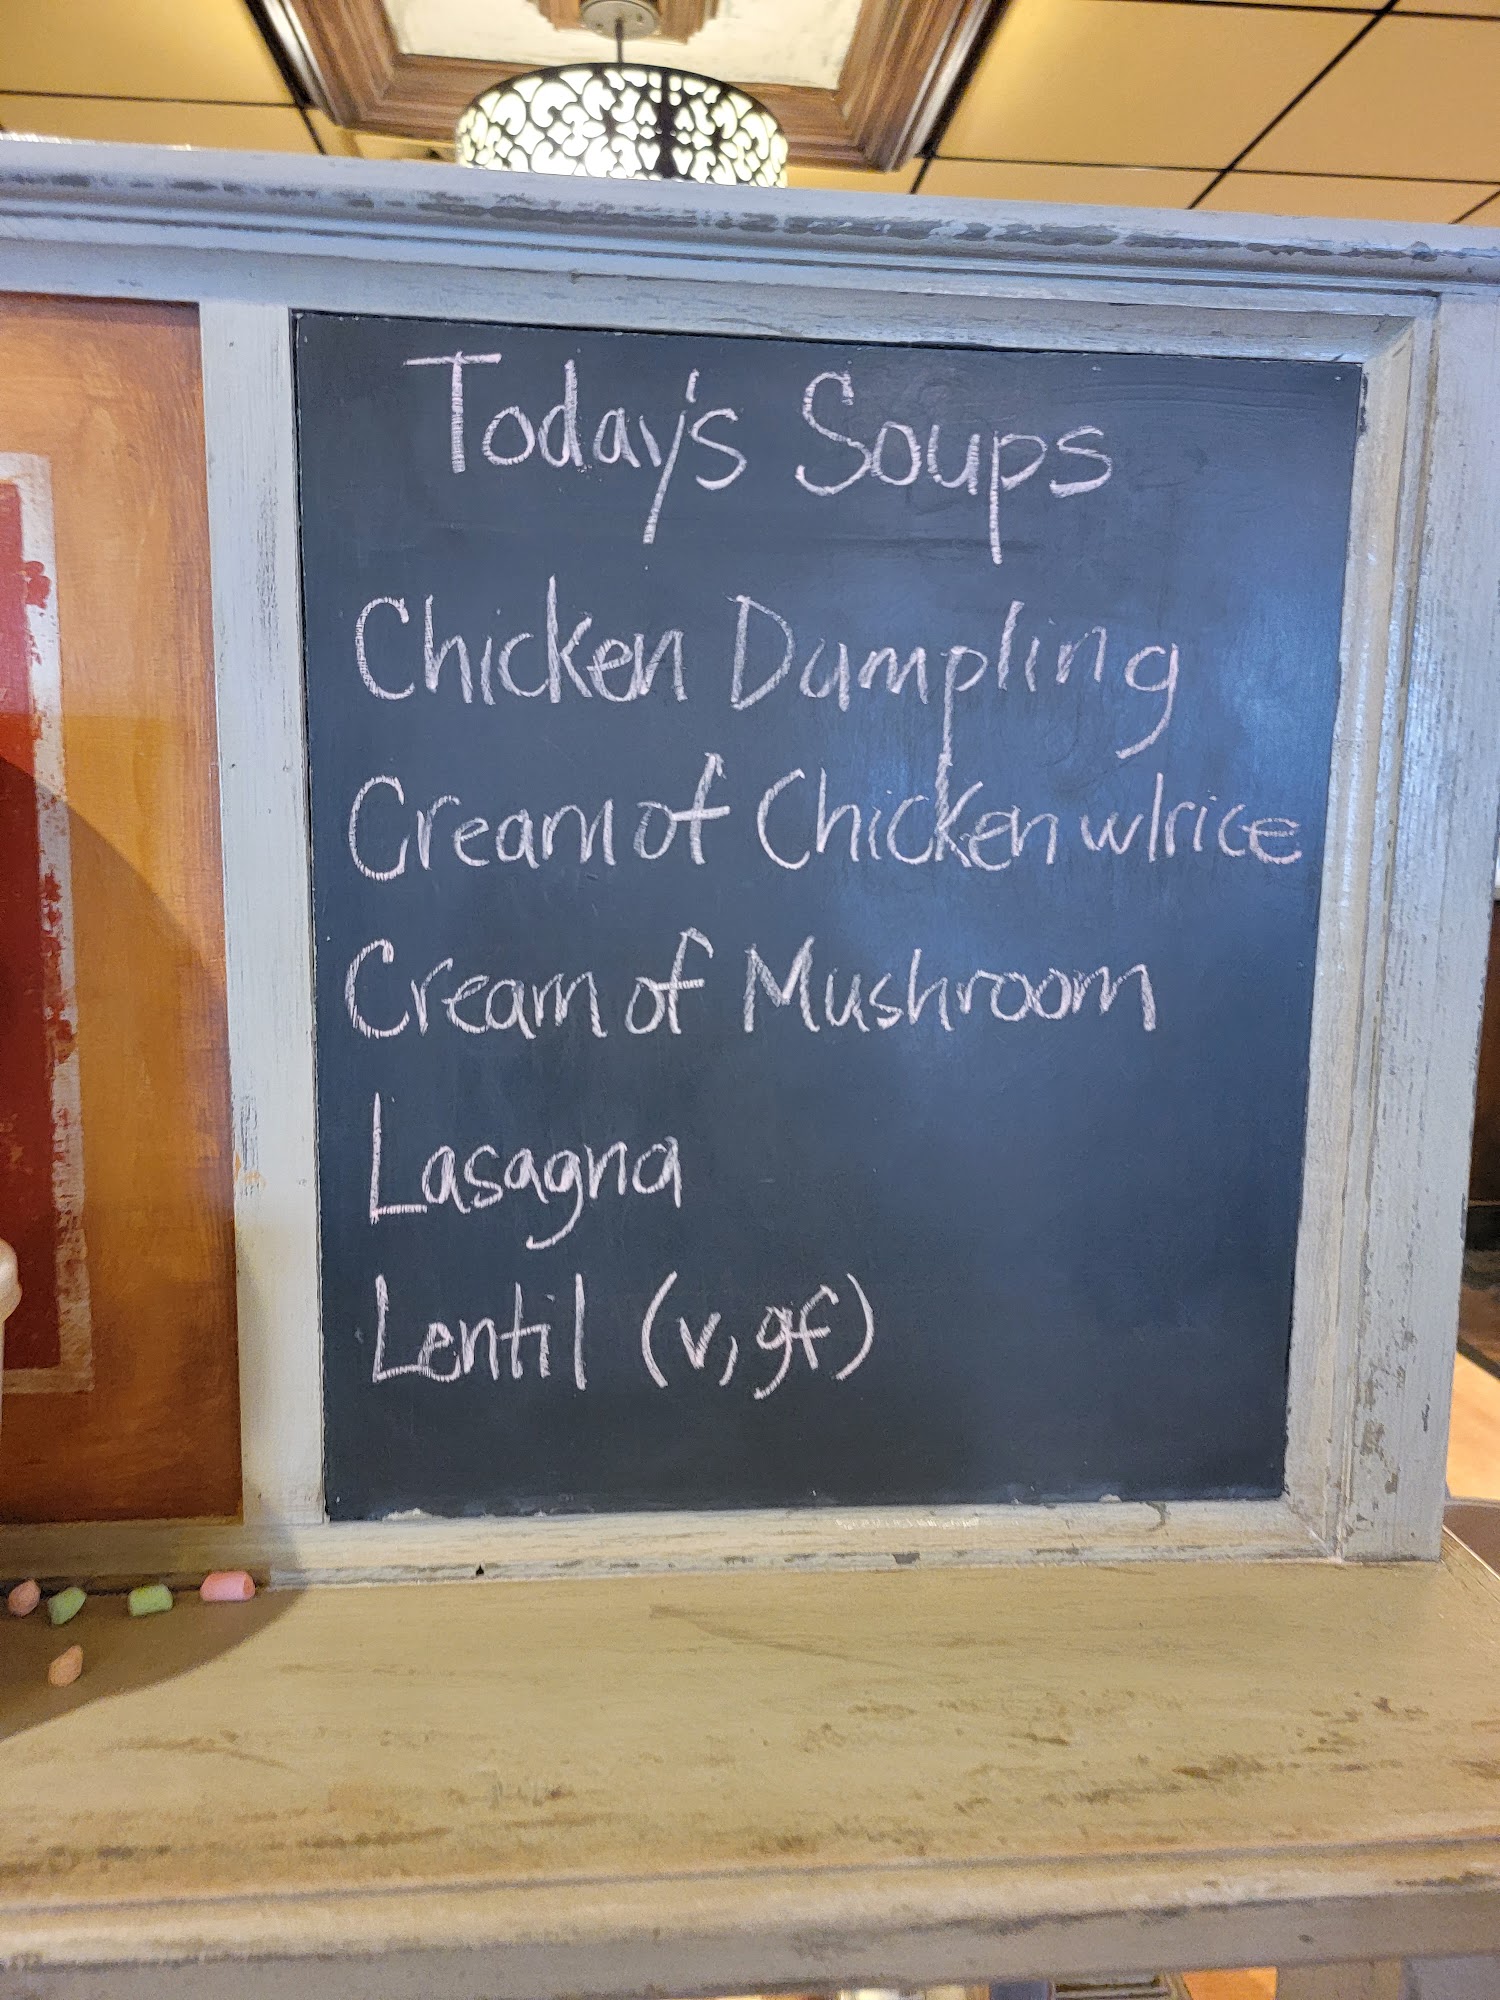 Today's Soups
Chicken Dumpling
Cream of Chicken w/rice
Cream of Mushroom
Lasagna
Lentil (v, gf)